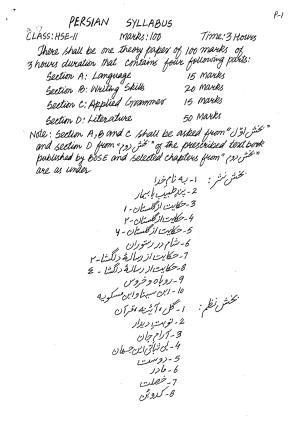 P-1
PERSIAN SYLLABUS
CLASS: HSE-II Marks: 100 Time: 3 Hours
There shall be one theory paper of 100 marks of
3 hours duration that contains four following parts:
Section A: Language 15 Marks
Section B: Writing Skills 20 Marks
Section C: Applied Grammer 15 Marks
Section D: Literature 50 Marks
Note: Section A, B and C shall be asked from "بخش اوّل"
and section D from "بخش دوم" of the prescribed text book
published by BOSE and selected chapters from "بخش دوم"
are as under
بخش نثر: ۱- به نام خدا
۲- پند طبیب با بیمار
۳- حکایت از گلستان - ۱
۴- حکایت از گلستان - ۲
۵- حکایت از گلستان - ۶
۶- شام در رستوران
۷- حکایت از رسالهٔ دلگشا - ۲
۸- حکایت از رسالهٔ دلگشا - ٤
۹- روباه و خروس
۱۰- ابن سینا و ابن مسکویه
بخش نظم: ۱- گل و آئینه و قرآن
۲- نوبت دیدار
۳- آرام جان
۴-
۵- دوست
۶- مادر
۷- خصلت
۸-